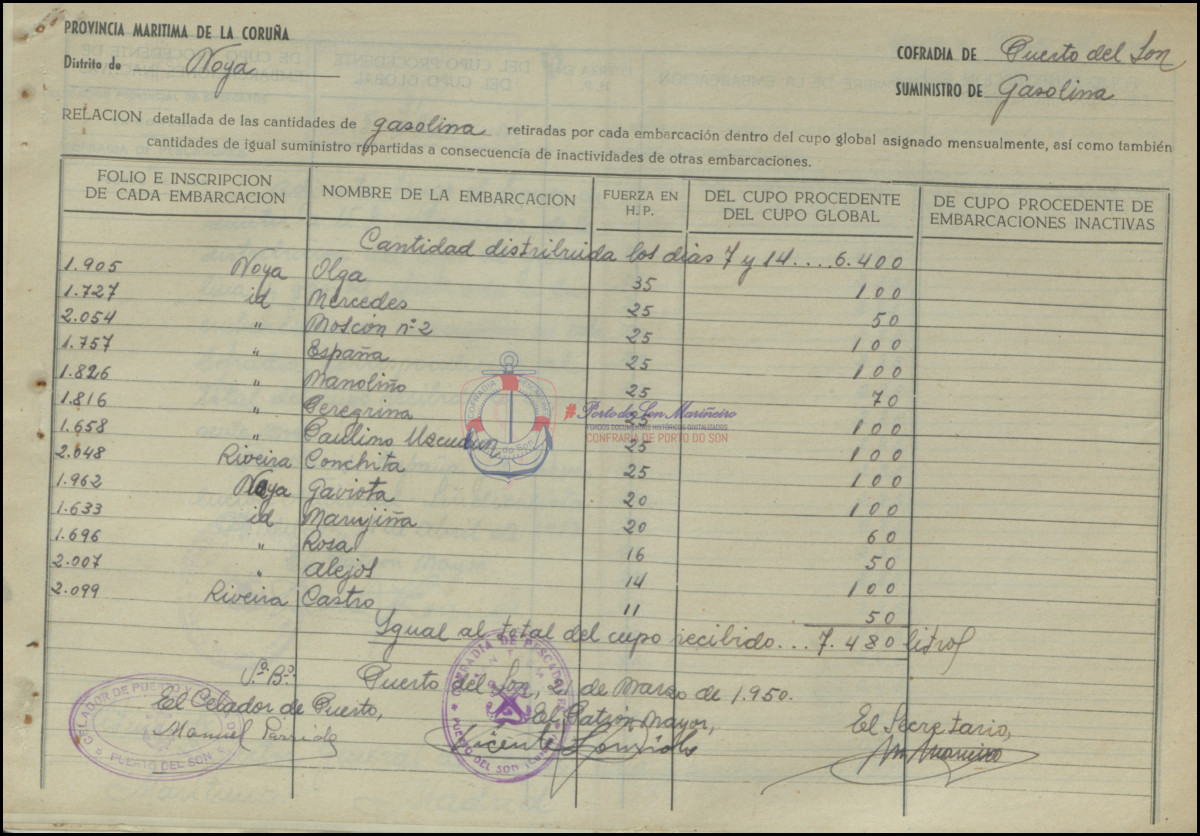 PROVINCIA MARITIMA DE LA CORUÑA
Distrito de Noya
COFRADIA DE Puerto del Son
SUMINISTRO DE Gasolina
RELACION detallada de las cantidades de gasolina retiradas por cada embarcación dentro del cupo global asignado mensualmente, así como también
cantidades de igual suministro repartidas a consecuencia de inactividades de otras embarcaciones.
FOLIO E INSCRIPCION DE CADA EMBARCACION | NOMBRE DE LA EMBARCACION | FUERZA EN H. P. | DEL CUPO PROCEDENTE DEL CUPO GLOBAL | DE CUPO PROCEDENTE DE EMBARCACIONES INACTIVAS
Cantidad distribuida los días 7 y 14....6.400
1.905 Noya Olga 35 100
1.727 id Mercedes 25 50
2.054 " Moscón nº 2 25 100
1.757 " España 25 100
1.826 " Manoliño 25 70
1.816 " Peregrina 25 100
1.658 " Paulino Uscudun 25 100
2.048 Riveira Conchita 25 100
1.962 Noya Gaviota 20 100
1.633 id Marujiña 20 60
1.696 " Rosa 16 50
2.007 " Alejos 14 100
2.099 Riveira Castro 11 50
Ygual al total del cupo recibido... 7.480 litros
Vº Bº
Puerto del Son, de Marzo de 1.950.
El Celador de Puerto,
El Patrón Mayor,
El Secretario,
Manuel
Vicente
CELADOR DE PUERTO
PUERTO DEL SON
COFRADIA DE PESCADORES
PUERTO DEL SON
#Porto do Son Mariñeiro
FONDOS DOCUMENTAIS HISTÓRICOS DIXITALIZADOS
CONFRARÍA DE PORTO DO SON